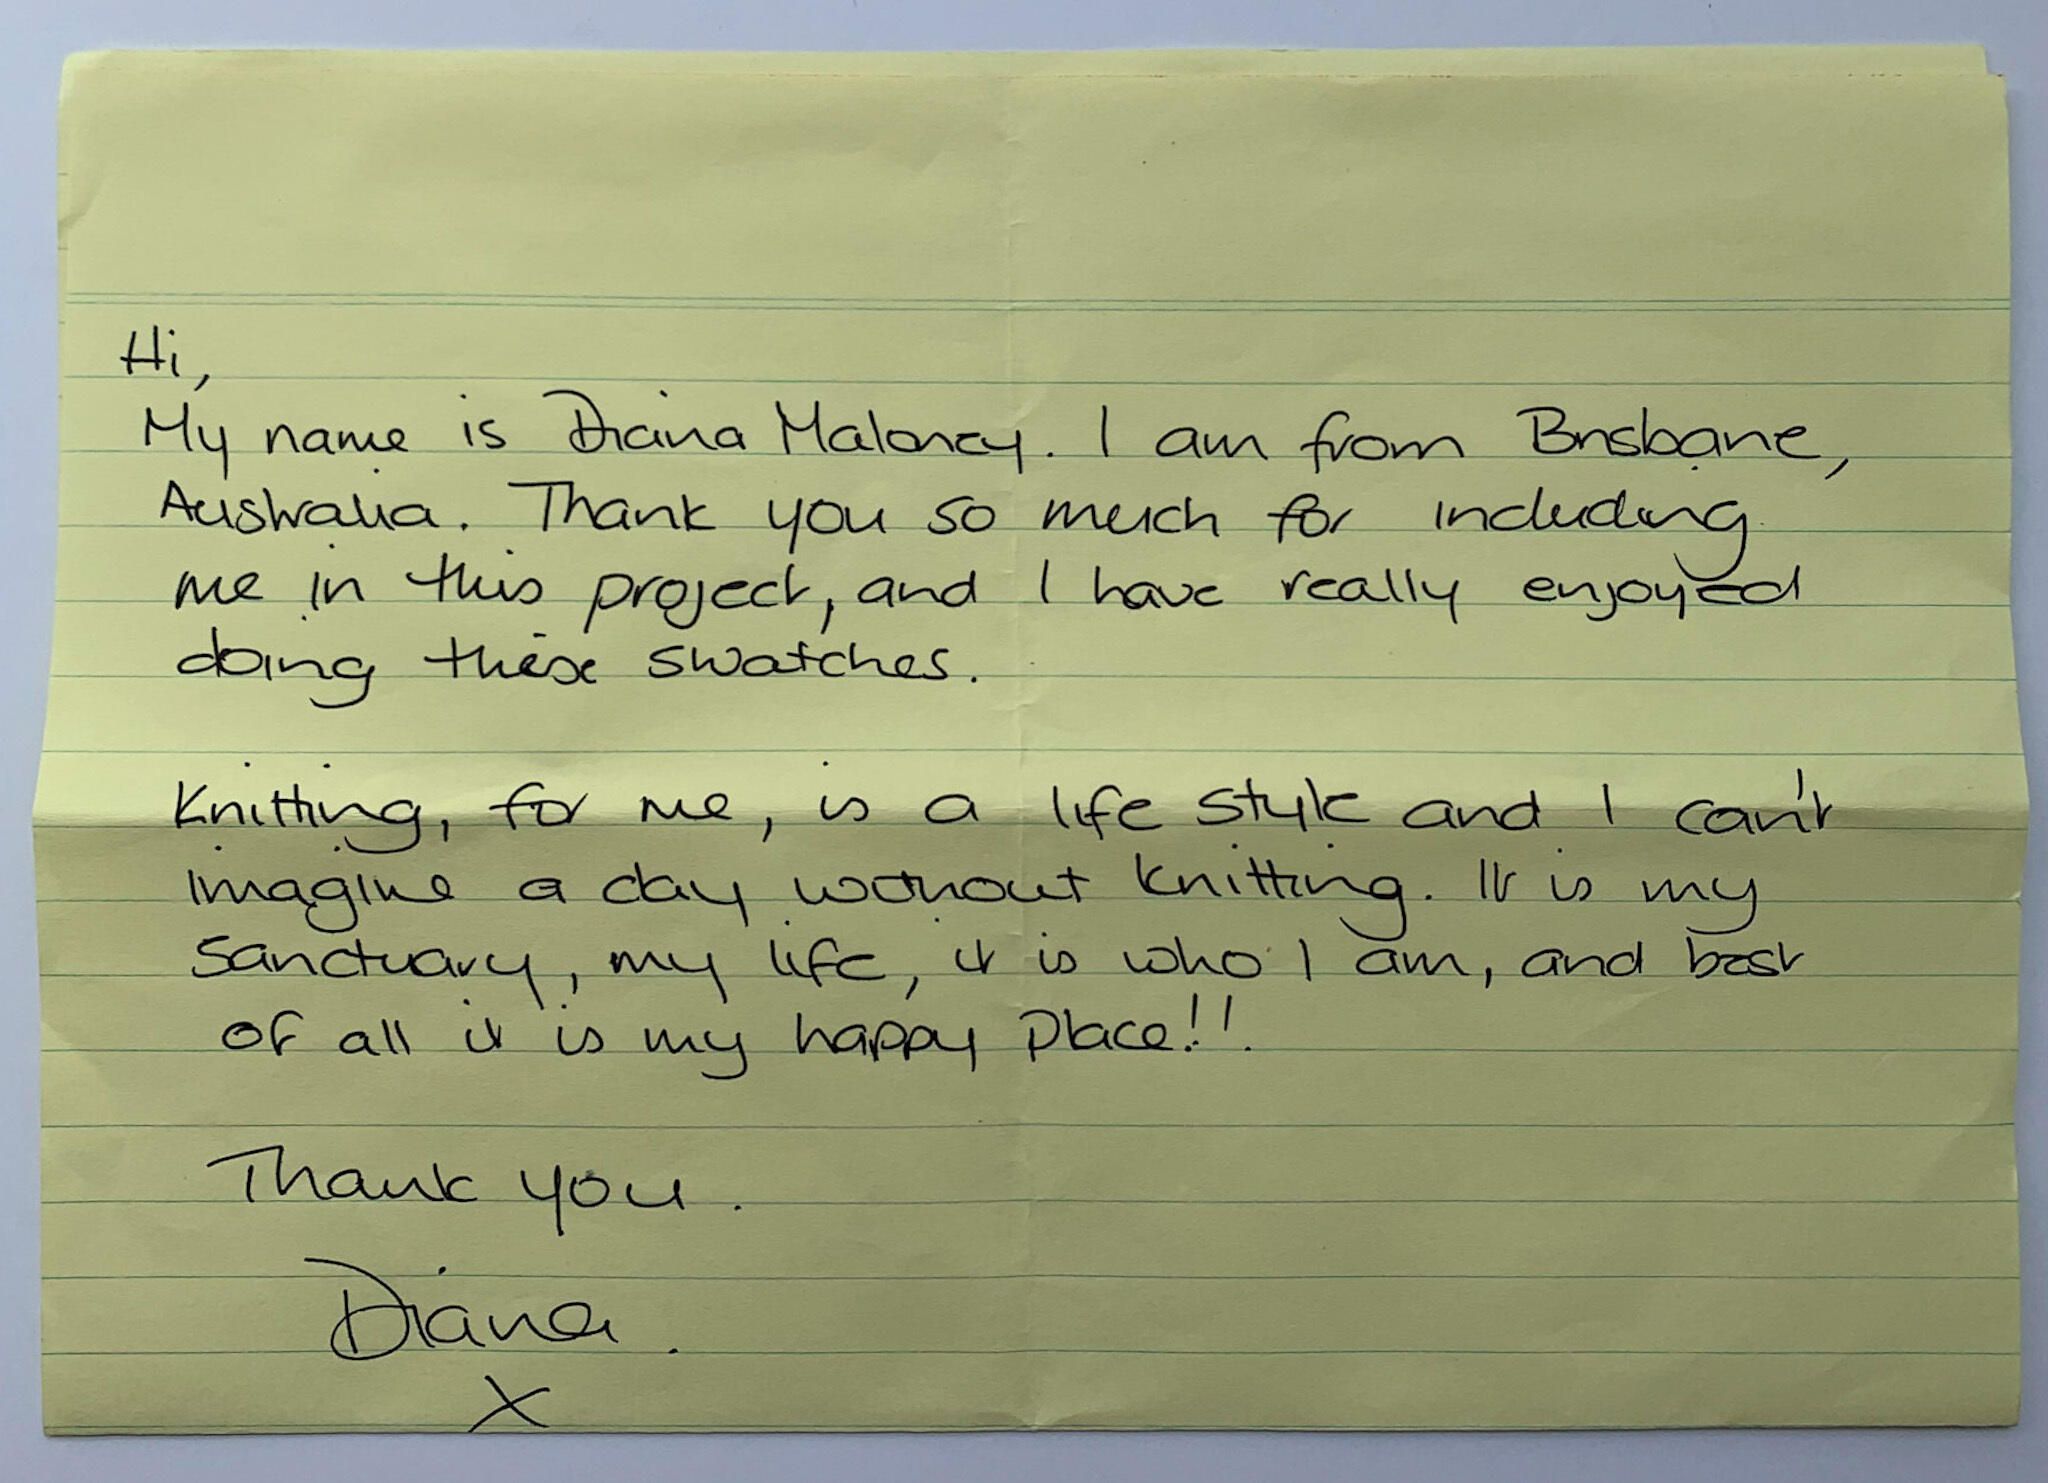 Hi,
My name is Diana Maloney. I am from Brisbane,
Australia. Thank you so much for including
me in this project, and I have really enjoyed
doing these swatches.
Knitting, for me, is a life style and I can't
imagine a day without knitting. It is my
sanctuary, my life, it is who I am, and best
of all it is my happy place!!
Thank you.
Diana.
X